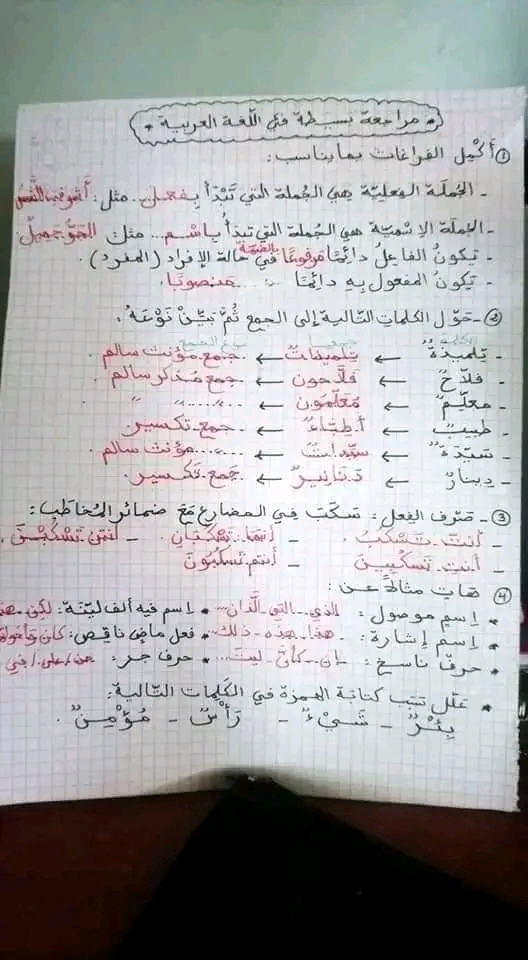 * مراجعة بسيطة في اللغة العربية *
① أكمل الفراغات بما يناسب:
- الجُملَة الفِعليّة هي الجُملة التي تَبْدَأ بِفعل... مثل: أشرقت الشّمسُ
- الجملة الإسْميّة هي الجُملة التي تبدأُ باسْم... مثل: الجَوّ جَميلٌ
- يَكونُ الفاعِلُ دائمًا مَرفوعًا بالضمة في حالة الإفراد (المفرد).
- يَكونُ المفعول بِهِ دائمًا ... منصوبًا.
② - حَوّل الكلمات التالية إلى الجمع ثُمَّ بيّنْ نَوْعَهُ:
الكلمة جمعها نوع الجمع
- تِلميذةٌ ← تِلميذاتٌ ← جمع مؤنث سالم.
- فلاّحٌ ← فلاّحون ← جمع مُذكر سالم.
- معلِّمٌ ← مُعلّمون ← " " "
- طبيبٌ ← أطِبّاءُ ← جمع تكسير.
- سَيّدةٌ ← سيّداتٌ ← ... مؤنث سالم
- دِينارٌ ← دَنانيرُ ← جَمع تَكسير.
③ - صَرّف الفِعل: سَكَبَ فِي المضارع مَعَ ضمائر المُخاطَب:
- أنتَ تَسْكُبُ . - أنتُما تَسْكُبَانِ . - أنتنّ تَسْكُبْنَ.
- أنتِ تَسْكُبِينَ - أنتم تَسْكُبُونَ
④ هَات مِثالاً عَن:
• اِسم موصول: الذي - التي - اللّذان... • اِسم فيه ألف ليّنة: لكن
• اِسم إشارة: هذا - هذه - ذلك... • فعل ماضٍ ناقِص: كان وأخواتها
• حرف ناسخ: إنّ - كأنّ - ليت... • حرف جر: من / على / في
• علّل سَبَب كتابة الهمزة في الكلمات التالية:
بِئْرٌ - شَيْءٌ - رَأْسٌ - مُؤْمِنٌ.